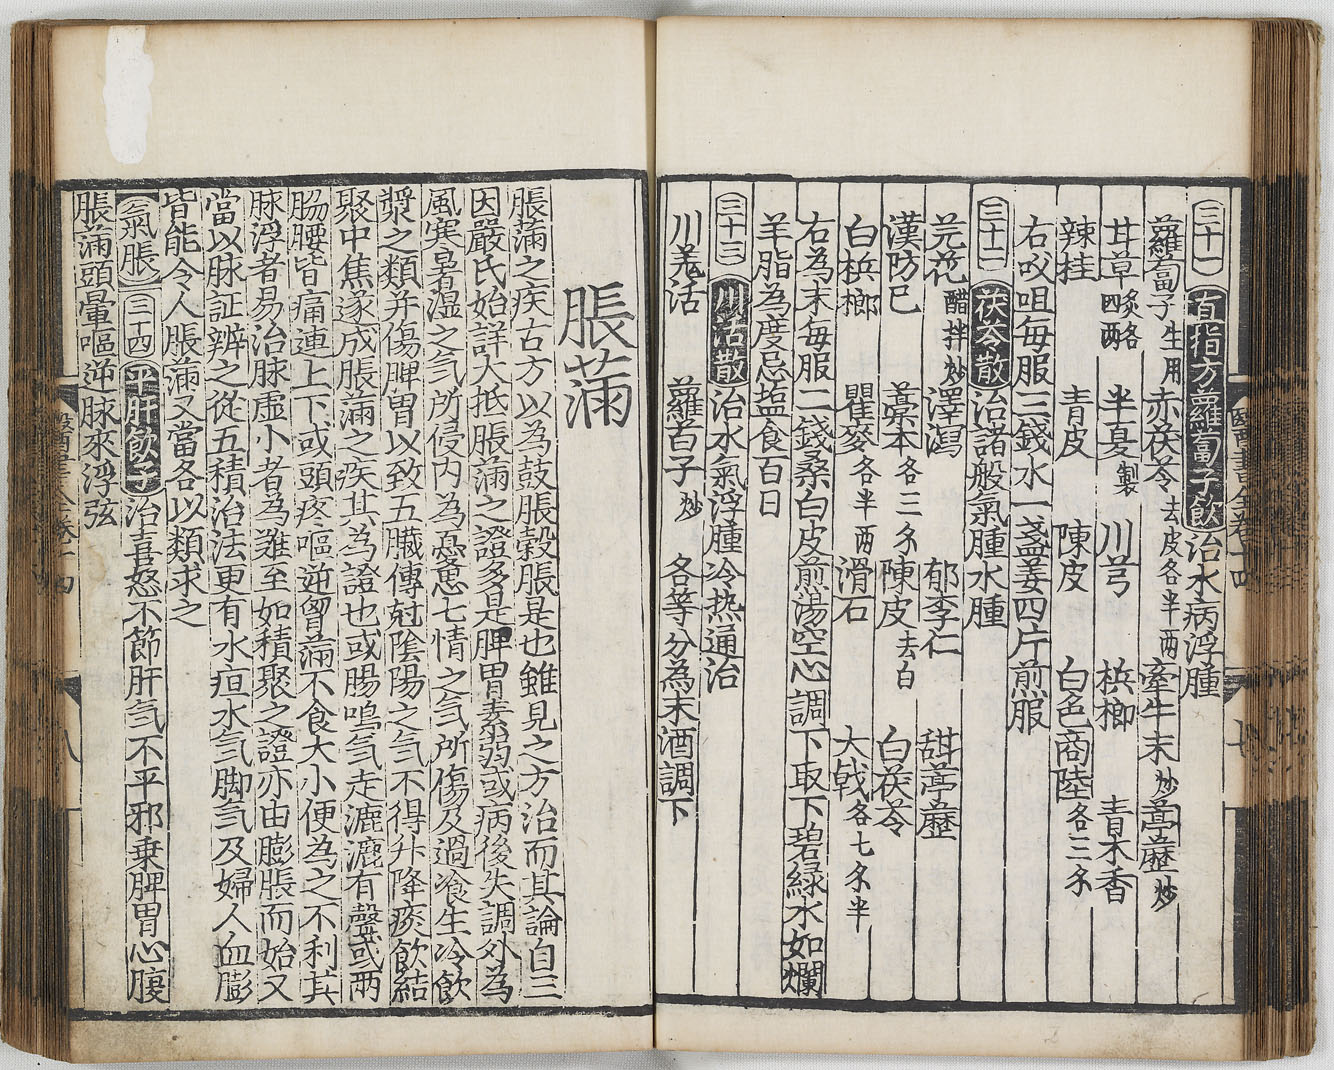 三十一 直指方蘿蔔子飲 治水病浮腫
蘿蔔子生用 赤茯苓去皮各半兩 牽牛末炒 葶藶炒
甘草炙各四兩 半夏製 川芎 梹榔 青木香
辣桂 青皮 陳皮 白色商陸各三分
右㕮咀每服三錢水一盞姜四片煎服
三十二 茯苓散 治諸般氣腫水腫
芫花醋拌炒 澤瀉 郁李仁 甜葶藶
漢防已 藁本各三分 陳皮去白 白茯苓
白梹榔 瞿麥各半兩 滑石 大戟各七分半
右為末每服二錢桑白皮煎湯空心調下取下碧綠水如爛
羊脂為度忌塩食百日
三十三 川活散 治水氣浮腫冷热通治
川羌活 蘿蔔子炒 各等分為末酒調下
脹滿
脹滿之疾古方以為鼓脹穀脹是也雖見之方治而其論自三
因嚴氏始詳大抵脹滿之證多是脾胃素弱或病後失調外為
風寒暑湿之氣所侵内為憂恚七情之氣所傷及過飡生冷飲
漿之類并傷脾胃以致五臟傳尅陰陽之气不得升降痰飲結
聚中焦遂成脹滿之疾其為證也或腸鳴气走漉漉有聲或兩
脇腰皆痛連上下或頭疼嘔逆胷滿不食大小便為之不利其
脉浮者易治脉虛小者為難至如積聚之證亦由膨脹而始又
當以脉証辨之從五積治法更有水疸水气脚气及婦人血膨
皆能令人脹滿又當各以類求之
氣脹 三十四 平肝飲子 治喜怒不節肝气不平邪乗脾胃心腹
脹滿頭暈嘔逆脉來浮弦